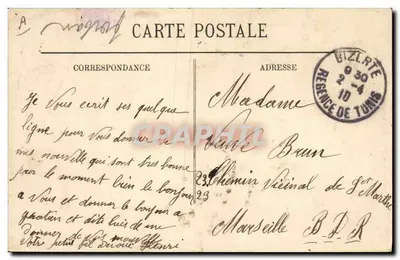 A
CARTE POSTALE
CORRESPONDANCE
ADRESSE
BIZERTE
6 30
2 - 4
10
REGENCE DE TUNIS
Je Vous ecrit ses quelque
ligne pour Vous donner de
mes nouvelle qui sont tres bonne
pour le moment bien le bonjour
a Vous et donner le bonjour a
et dite lui de me
donner de vos
Votre petit Henri
Madame
Veuve Brun
23 Chemin Vicinal de St Marthe
23
Marseille B. D. R
CRAPHIL